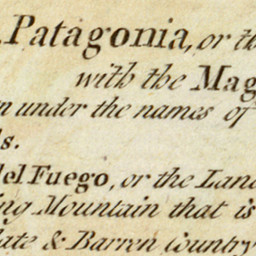 Patagonia, or th
with the Mag
n under the names of
s.
del Fuego, or the Land
ng Mountain that is
late & Barren Country